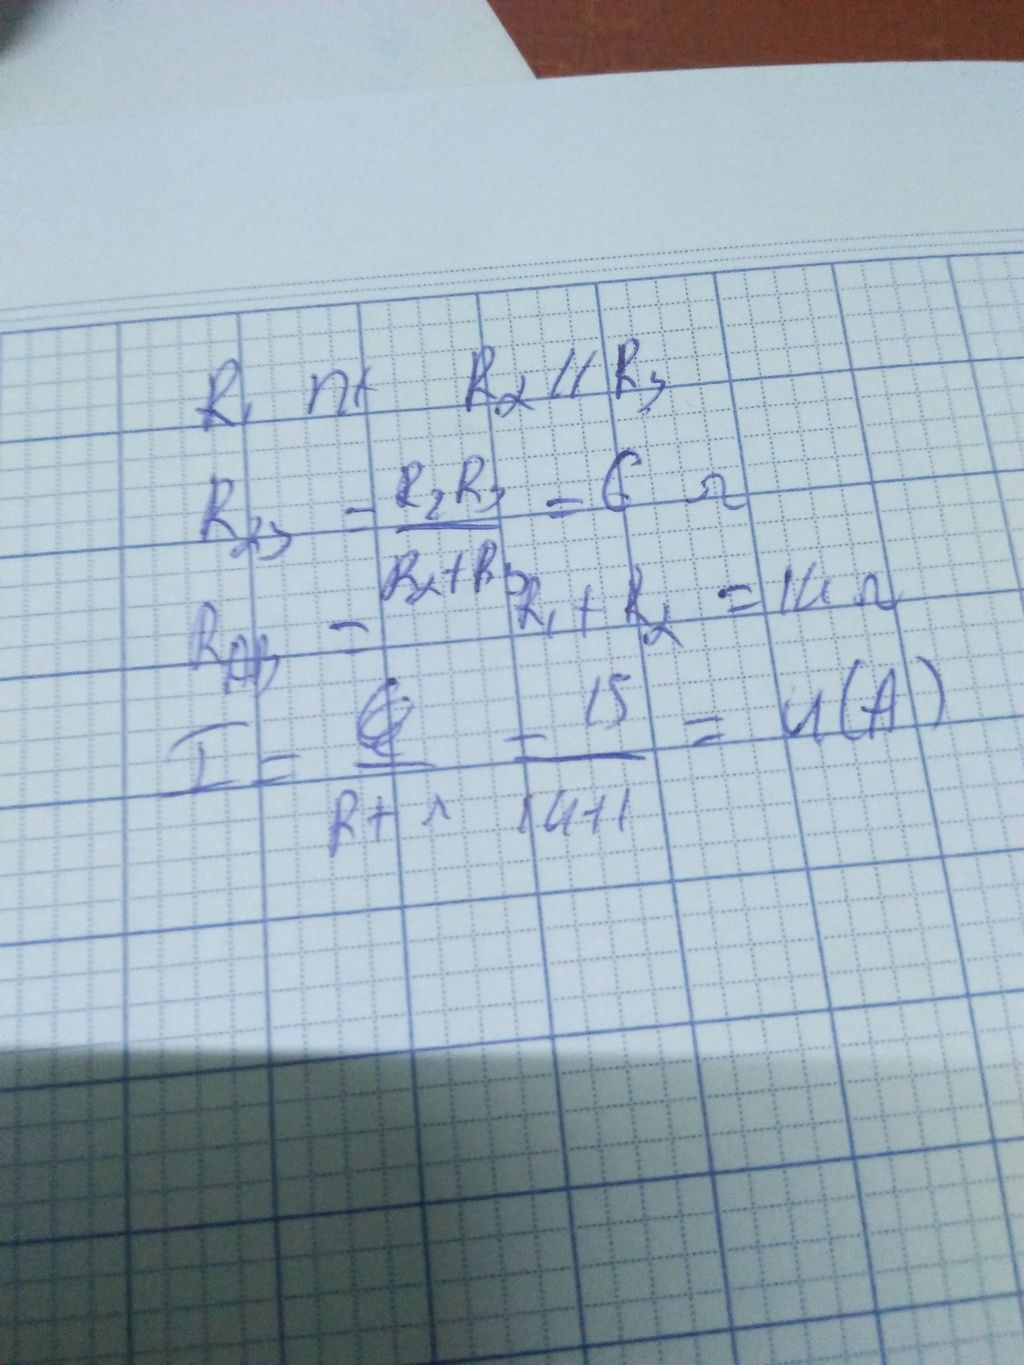 R₁ nt R₂ // R₃
R₂₃ = R₂R₃ / R₂+R₃ = 6 Ω
R_AB = R₁ + R₂ = 14 Ω
I = / R+r = 15 / 14+1 = 4 (A)